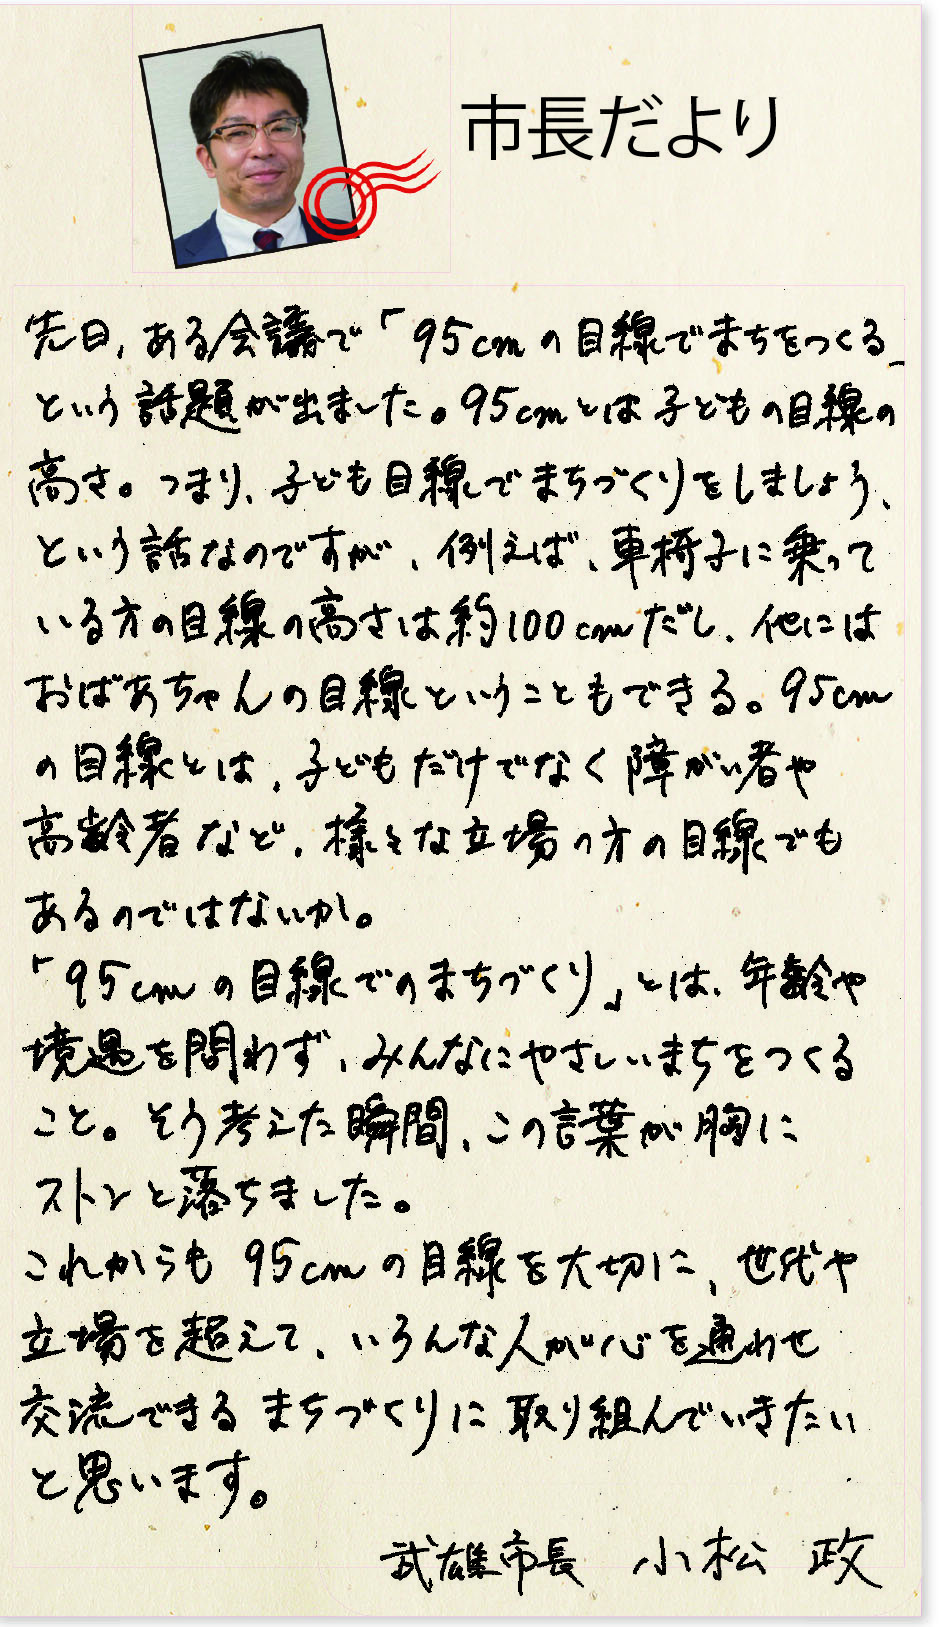 市長だより
先日、ある会議で「95cmの目線でまちをつくる」
という話題が出ました。95cmとは子どもの目線の
高さ。つまり、子ども目線でまちづくりをしましょう、
という話なのですが、例えば、車椅子に乗って
いる方の目線の高さは約100cmだし、他には
おばあちゃんの目線ということもできる。95cm
の目線とは、子どもだけでなく障がい者や
高齢者など、様々な立場の方の目線でも
あるのではないか。
「95cmの目線でのまちづくり」とは、年齢や
境遇を問わず、みんなにやさしいまちをつくる
こと。そう考えた瞬間、この言葉が胸に
ストンと落ちました。
これからも95cmの目線を大切に、世代や
立場を超えて、いろんな人が心を通わせ
交流できるまちづくりに取り組んでいきたい
と思います。
武雄市長 小松 政